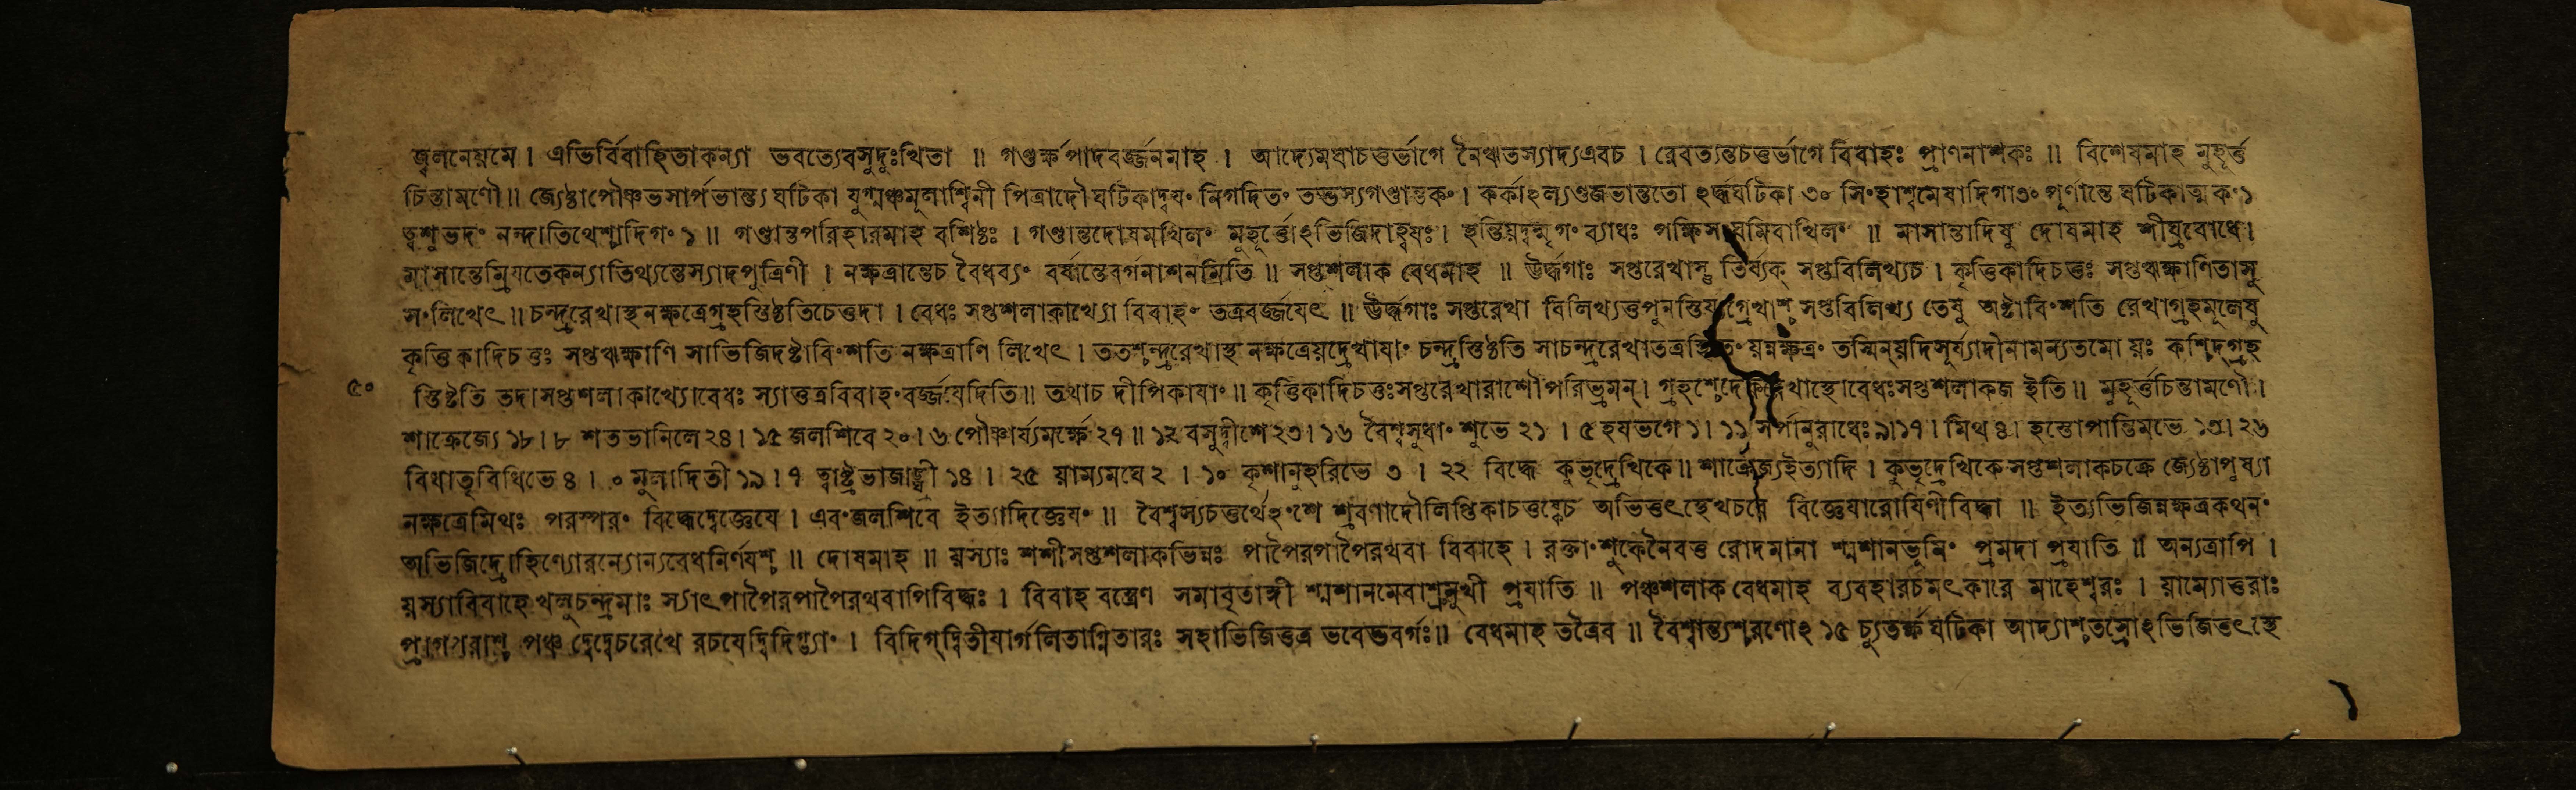 জ্বলনেয়মে। এভির্বিবাহিতাকন্যা ভবত্যেবসুদুঃখিতা ॥ গণ্ডর্ক্ষপাদবর্জ্জনমাহ। আদ্যেমঘাচত্তর্ভাগে নৈঋতস্যাদ্যএবচ। রেবত্যন্তচত্তর্ভাগে বিবাহঃ প্রাণনাশকঃ ॥ বিশেষমাহ মুহূর্ত্ত
চিন্তামণৌ॥ জ্যেষ্ঠাপৌষ্ণভসার্পভান্ত্য ঘটিকা যুগ্মঞ্চমূলাশ্বিনী পিত্রাদৌ ঘটিকাদ্বয়ং নিগদিতং তদ্ভস্যগণ্ডান্তকং। কর্কাঽল্যণ্ডজভান্ততো ঽর্দ্ধঘটিকা ৩০ সিংহাশ্বমেষাদিগা৩০ পূর্ণান্তে ঘটিকাত্মকং১
ত্বশুভদং নন্দাতিথেশ্চাদিগং ১॥ গণ্ডান্তপরিহারমাহ বশিষ্ঠঃ। গণ্ডান্তদোষমখিলং মুহূর্ত্তোঽভিজিদাহ্বয়ঃ। হন্তিয়দ্বন্মৃগং ব্যাধঃ পক্ষিসংঘমিবাখিলং ॥ মাসান্তাদিষু দোষমাহ শীঘ্রবোধে।
মাসান্তেম্রিয়তেকন্যাতিথ্যন্তেস্যাদপুত্রিণী। নক্ষত্রান্তেচ বৈধব্যং বর্ষান্তেবর্গনাশনমিতি॥ সপ্তশলাক বেধমাহ ॥ ঊর্দ্ধগাঃ সপ্তরেখাস্তু তির্য্যক্ সপ্তবিলিখ্যচ। কৃত্তিকাদিচত্তঃ সপ্তঋক্ষাণিতাসু
সংলিখেৎ॥ চন্দ্ররেখাস্থনক্ষত্রেগ্রহস্তিষ্ঠতিচেত্তদা। বেধঃ সপ্তশলাকাখ্যো বিবাহং তত্রবর্জ্জয়েৎ॥ ঊর্দ্ধগাঃ সপ্তরেখা বিলিখ্যত্তপুনস্তির্য্যগ্রেখাশ্চ সপ্তবিলিখ্য তেষু অষ্টাবিংশতি রেখাগ্রহমূলেষু
কৃত্তিকাদিচত্তঃ সপ্তঋক্ষাণি সাভিজিদষ্টাবিংশতি নক্ষত্রাণি লিখেৎ। ততশ্চন্দ্ররেখাস্থ নক্ষত্রেয়দ্রেখায়াং চন্দ্রস্তিষ্ঠতি সাচন্দ্ররেখাতত্রস্থিতং য়ন্নক্ষত্রং তস্মিন্য়দিসূর্য্যাদীনামন্যতমো য়ঃ কশ্চিদ্গ্রহ
৫০ স্তিষ্ঠতি তদাসপ্তশলাকাখ্যোবেধঃ স্যাত্তত্রবিবাহংবর্জ্জয়েদিতি॥ তথাচ দীপিকায়াং॥ কৃত্তিকাদিচত্তঃসপ্তরেখারাশৌপরিভ্রমন্। গ্রহশ্চেদেকরেখাস্থোবেধঃসপ্তশলাকজ ইতি॥ মুহূর্ত্তচিন্তামণৌ।
শাক্রেজ্যে ১৮।৮ শতভানিলে ২৪।১৫ জলশিবে ২০।৬ পৌষ্ণার্য্যমর্ক্ষে ২৭॥ ১২ বসুদ্বীশে ২৩।১৬ বৈশ্বসুধাংশুভে ২১। ৫ হয়ভগে ১। ১১ সর্পানুরাধেঃ ৯।১৭। মিথঃ। হস্তোপান্তিমভে ১৩।২৬
বিধাতৃবিধিভে ৪। ০ মূলাদিতী ১৯।৭ ত্বাষ্ট্রভাজাঙ্ঘ্রী ১৪। ২৫ য়াম্যমঘে ২। ১০ কৃশানুহরিভে ৩। ২২ বিদ্ধে কুভৃদ্রেখিকে॥ শাক্রেজ্যইত্যাদি। কুভৃদ্রেখিকেসপ্তশলাকচক্রে জ্যেষ্ঠাপুষ্যা
নক্ষত্রেমিথঃ পরস্পরং বিদ্ধেদ্বেজ্ঞেয়ে। এবংজলশিবে ইত্যাদিজ্ঞেয়ং॥ বৈশ্বস্যচত্তর্থেঽংশে শ্রবণাদৌলিপ্তিকাচত্তষ্কেচ অভিত্তৎস্থেখচরে বিজ্ঞেয়ারোহিণীবিদ্ধা ॥ ইত্যভিজিন্নক্ষত্রকথনং
অভিজিদ্রোহিণ্যোরন্যোন্যবেধনির্ণয়শ্চ ॥ দোষমাহ ॥ য়স্যাঃ শশীসপ্তশলাকভিন্নঃ পাপৈরপাপৈরথবা বিবাহে। রক্তাংশুকেনৈবত্ত রোদমানা শ্মশানভূমিং প্রমদা প্রয়াতি ॥ অন্যত্রাপি।
য়স্যাবিবাহেখলুচন্দ্রমাঃ স্যাৎপাপৈরপাপৈরথবাপিবিদ্ধঃ। বিবাহ বস্ত্রেণ সমাবৃতাঙ্গী শ্মশানমেবাশ্রুমুখী প্রয়াতি ॥ পঞ্চশলাক বেধমাহ ব্যবহারচমৎকারে মাহেশ্বরঃ। য়াম্যোত্তরাঃ
প্রাগপরাশ্চ পঞ্চ দ্বেদ্বেচরেখে রচয়েদ্বিদিগ্ভ্যাং। বিদিগ্দ্বিতীয়ার্গলিতাগ্নিতারঃ সহাভিজিত্তত্র ভবেদ্ভবর্গঃ॥ বেধমাহ তত্রৈব ॥ বৈশ্বান্ত্যশ্চরণোঽ ১৫ চ্যুতর্ক্ষ ঘটিকা আদ্যাশ্চতস্রোঽভিজিত্তৎস্থে